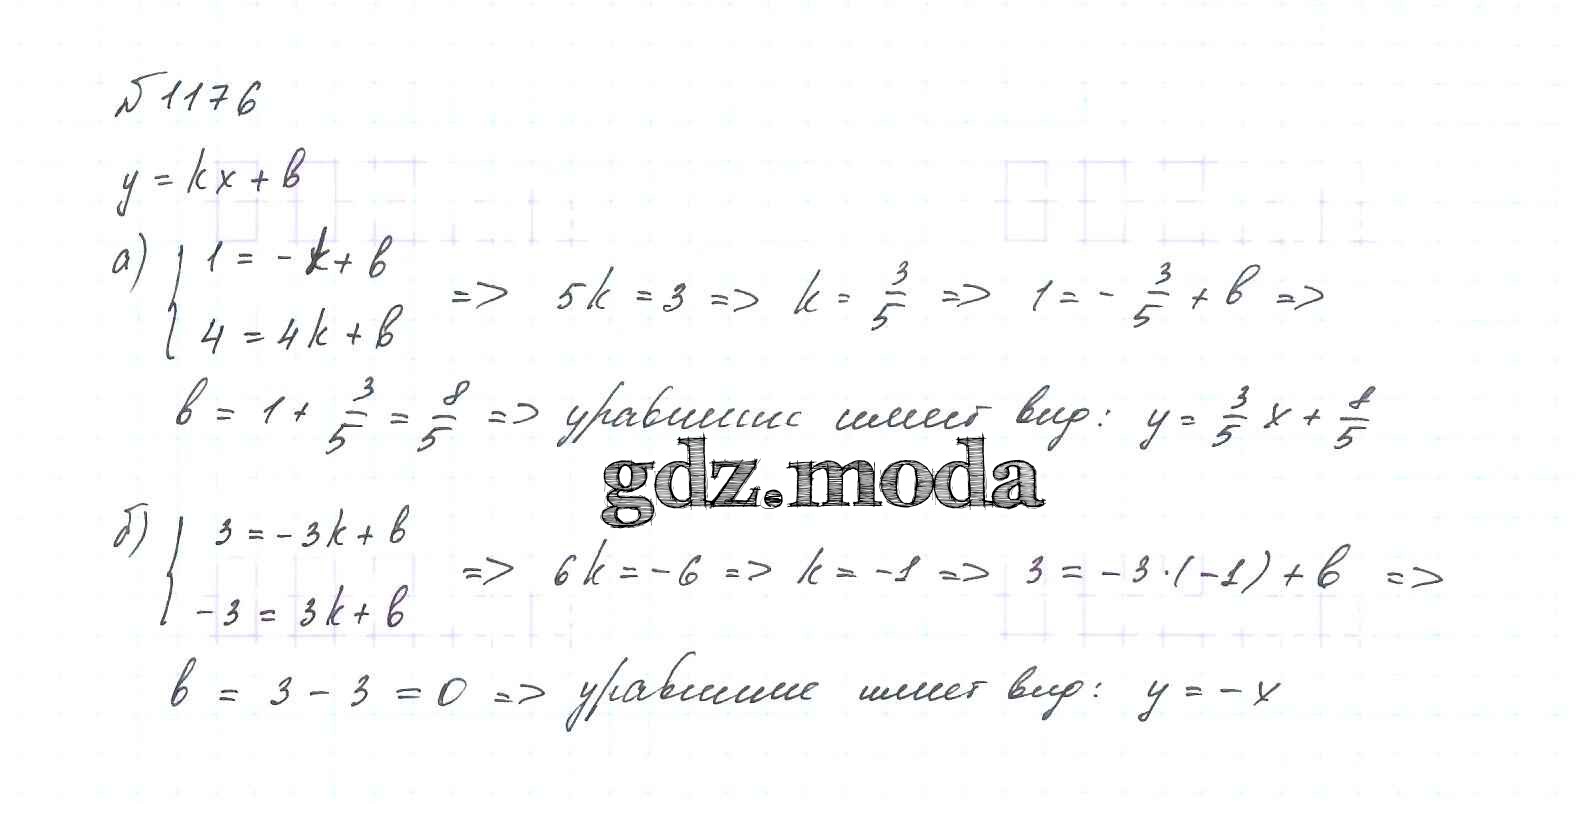 №1176
y = kx + b
а) { 1 = -k + b
4 = 4k + b
=> 5k = 3 => k = 3/5 => 1 = - 3/5 + b =>
b = 1 + 3/5 = 8/5 => уравнение имеет вид: y = 3/5 x + 8/5
gdz.moda
б) { 3 = -3k + b
-3 = 3k + b
=> 6k = -6 => k = -1 => 3 = -3·(-1) + b =>
b = 3 - 3 = 0 => уравнение имеет вид: y = -x